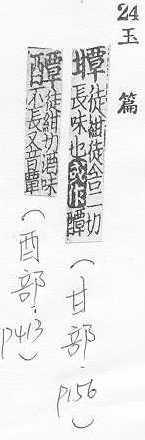 24 玉篇
徒紺徒含二切
長味也或作醰
（甘部．p156）
醰徒紺切酒味
不長又音覃
（酉部．p413）